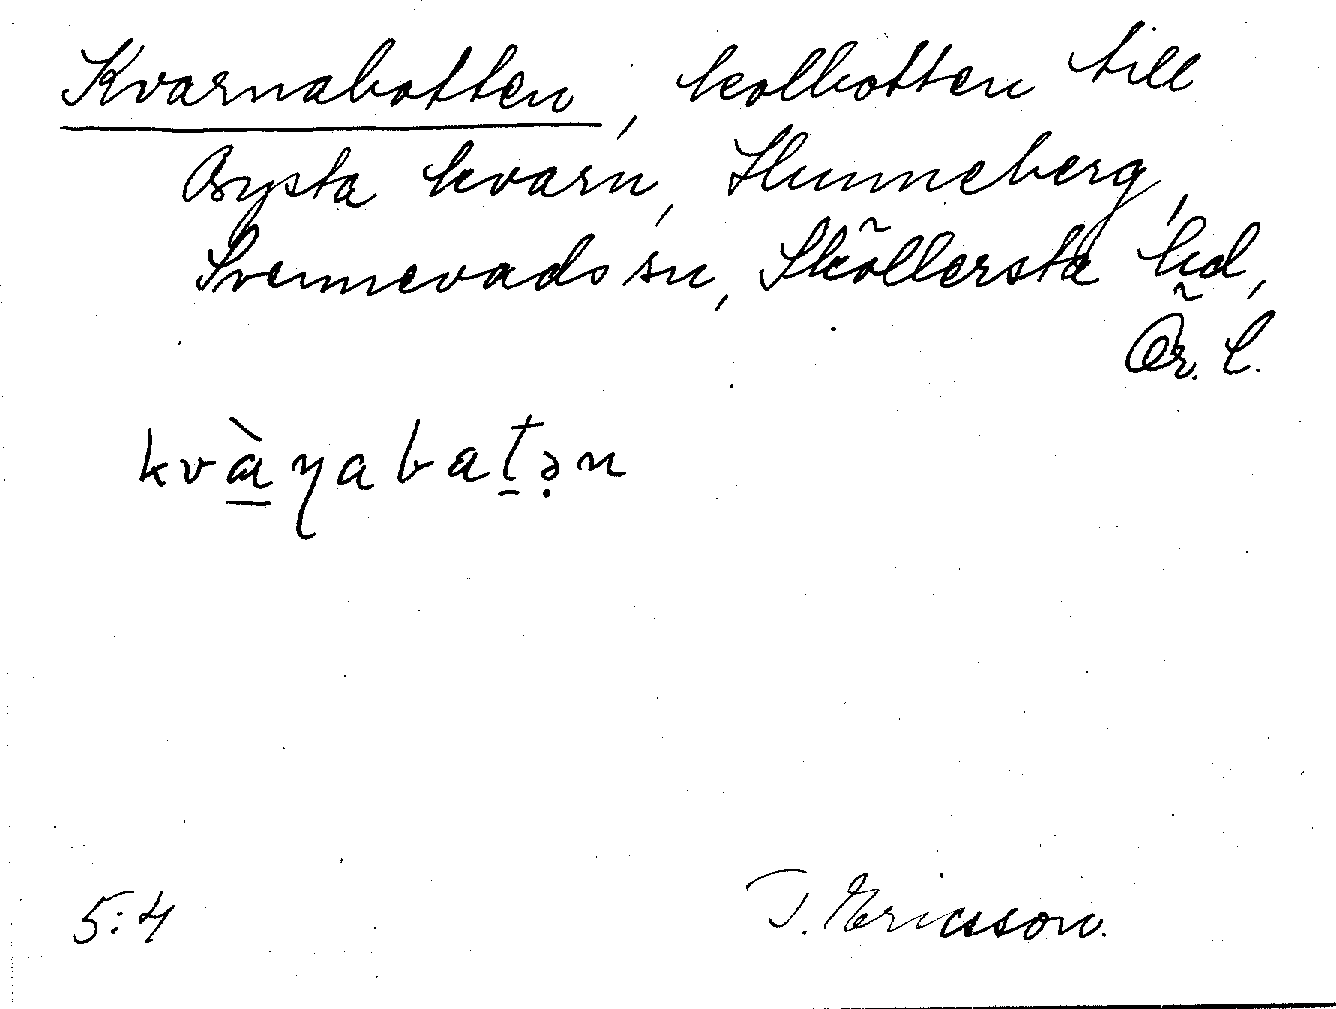 Kvarnabotten, kolbotten till
Bysta kvarn, Hunneberg,
Svennevads sn, Sköllersta hd,
Ör. l.
kvàɳabat̠ən
5:4
T. Ericsson.